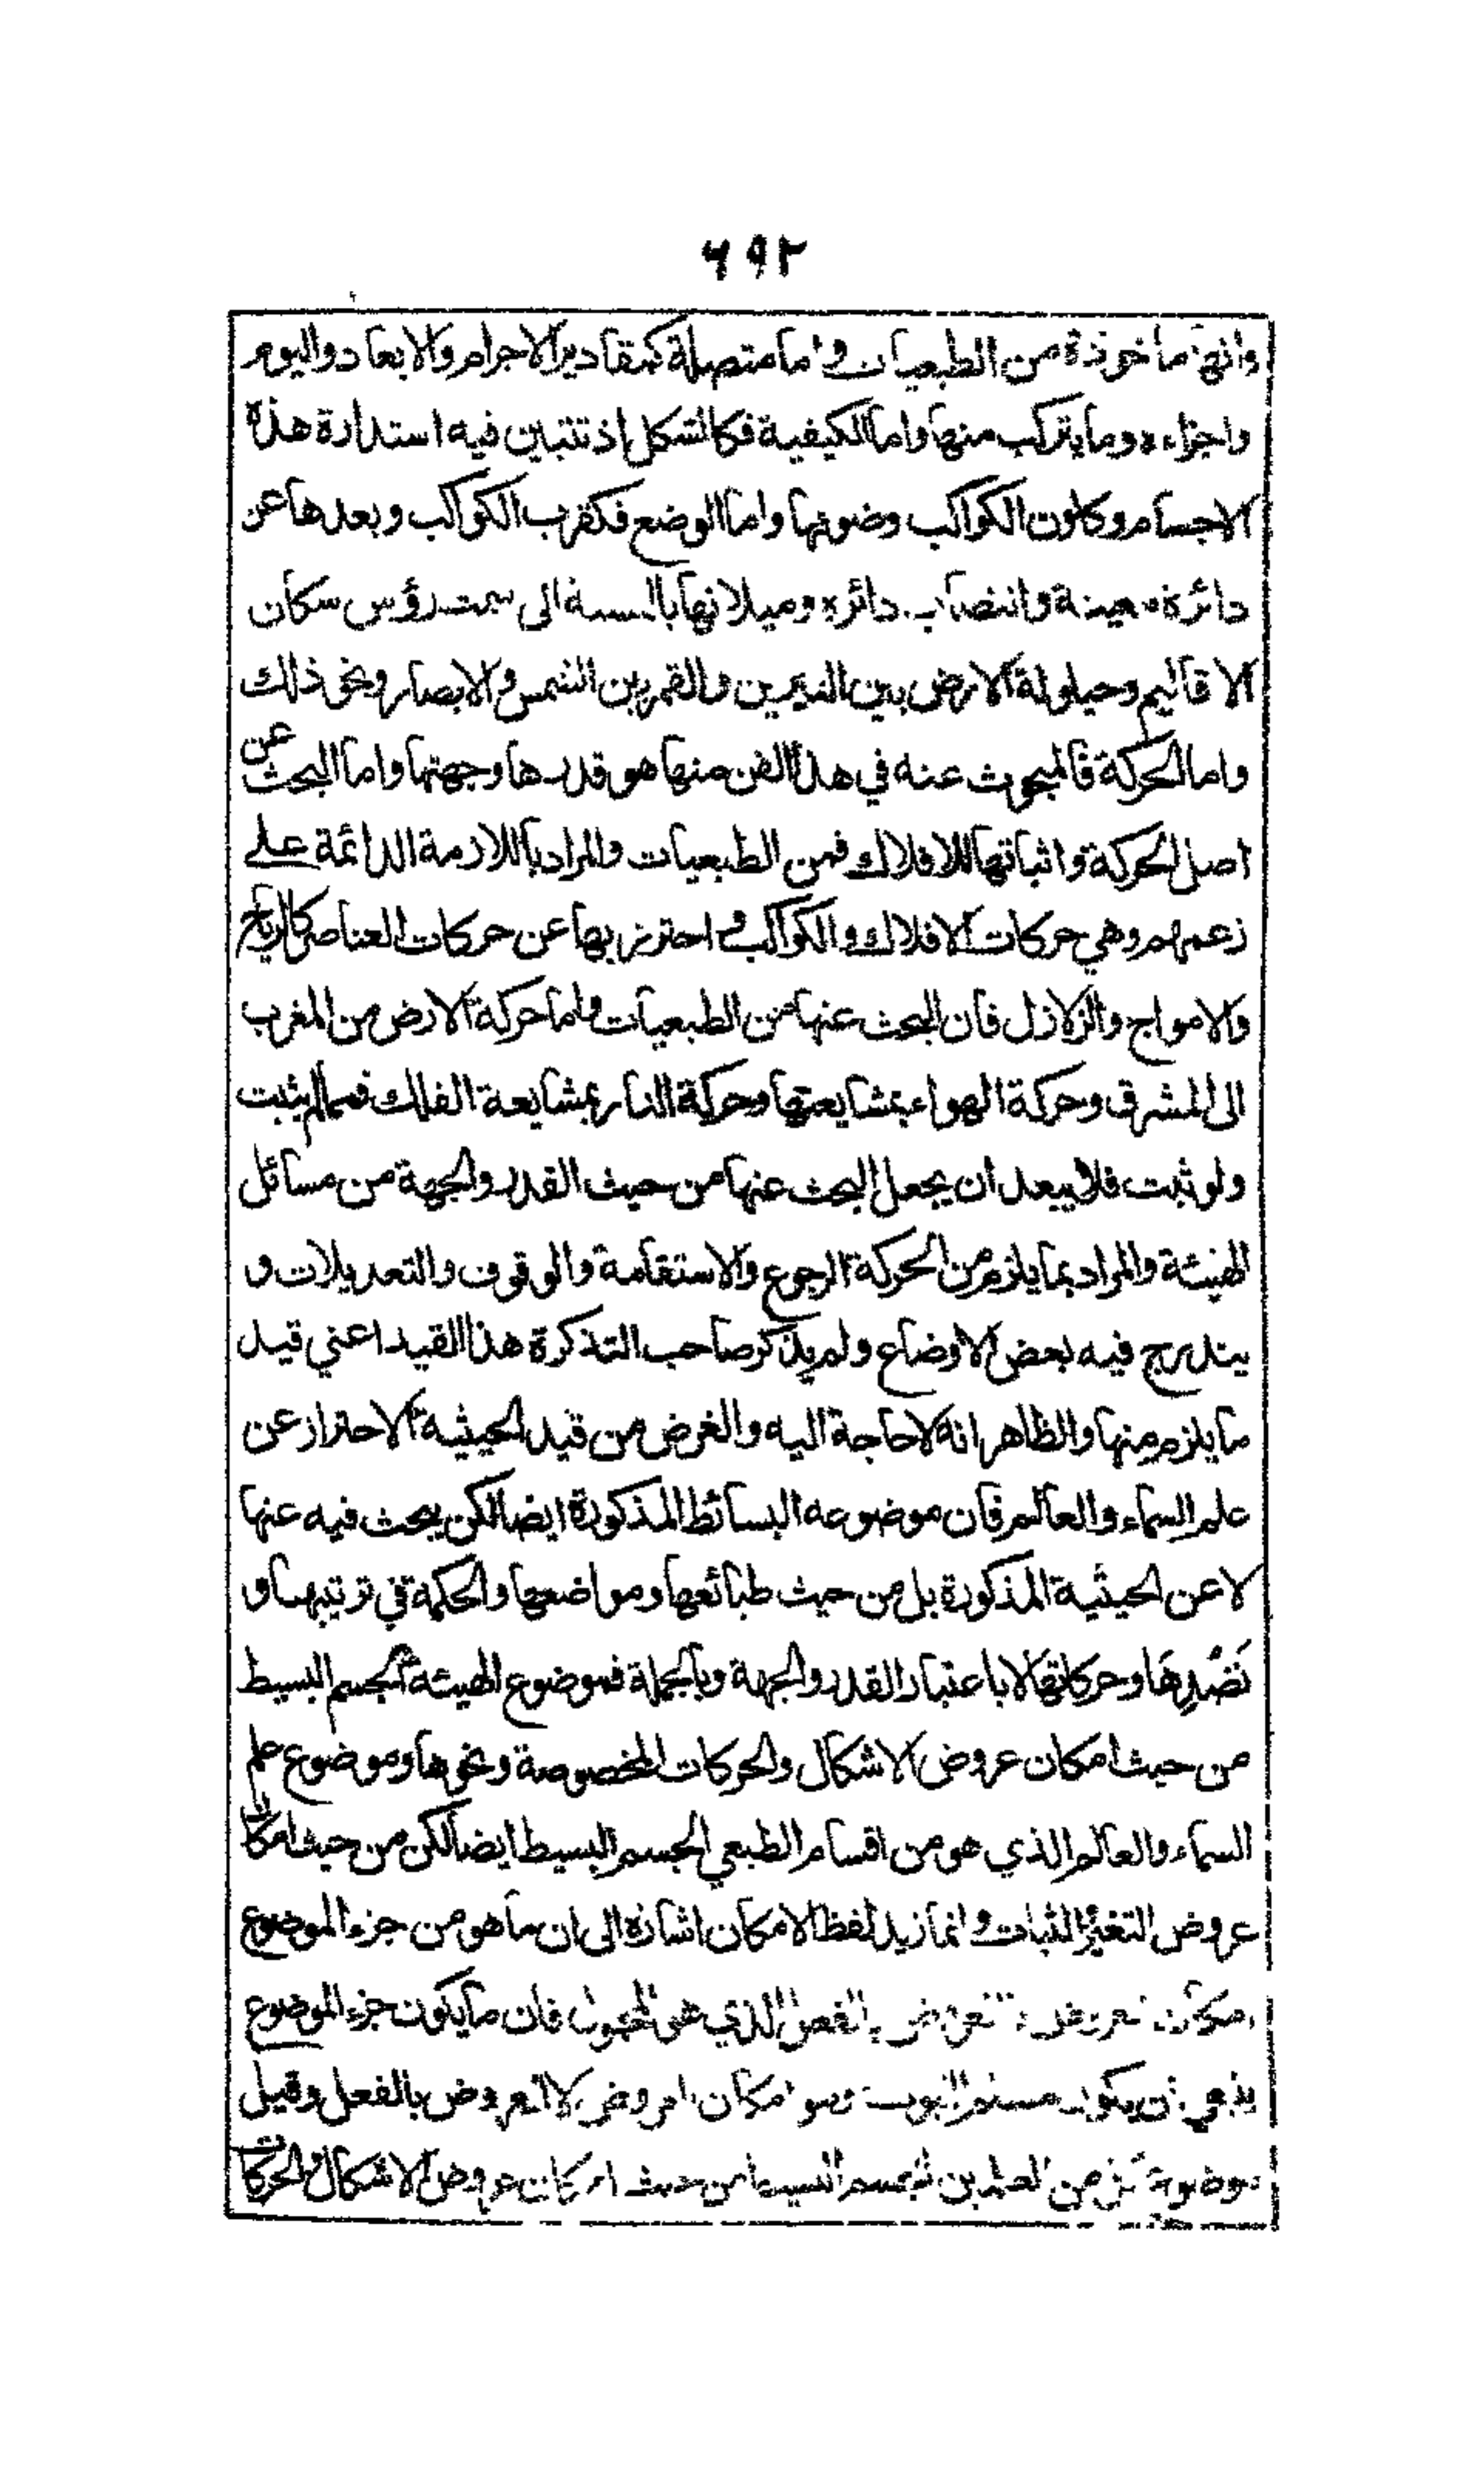 ٦٩٢
وانها ماخوذة من الطبعيات واما متصلة كمقادير الاجرام والابعاد واليوم
واجزاءه وما يتركب منها واما الكيفية فكالشكل اذ تتبين فيه استدارة هذه
الاجسام وكلون الكواكب وضوئها واما الوضع فكقرب الكواكب وبعدها عن
دائرة معينة وانتصاب دائرة وميلانها بالنسبة الى سمت رؤس سكان
الاقاليم وحيلولة الارض بين النيرين والقمر بين الشمس والابصار ونحو ذلك
واما الحركة فالمبحوث عنه في هذا الفن منها هو قدرها وجهتها واما البحث عن
اصل الحركة واثباتها للافلاك فمن الطبعيات والمراد باللازمة الدائمة على
زعمهم وهي حركات الافلاك والكواكب واحترز بها عن حركات العناصر كالرياح
والامواج والزلازل فان البحث عنها من الطبعيات واما حركة الارض من المغرب
الى المشرق وحركة الهواء بمشايعتها وحركة النار بمشايعة الفلك فمما لم يثبت
ولو ثبت فلا يبعد ان يجعل البحث عنها من حيث القدر والجهة من مسائل
الهيئة والمراد بما يلزم من الحركة الرجوع والاستقامة والوقوف والتعديلات و
يندرج فيه بعض الاوضاع ولم يذكر صاحب التذكرة هذا القيد اعني قيد
ما يلزم منها والظاهر انه لا حاجة اليه والغرض من قيد الحيثية الاحتراز عن
علم السماء والعالم فان موضوعه البسائط المذكورة ايضا لكن يبحث فيه عنها
لا عن الحيثية المذكورة بل من حيث طبائعها ومواضعها والحكمة في ترتيبها و
نضدها وحركاتها لا باعتبار القدر والجهة وبالجملة فموضوع الهيئة الجسم البسيط
من حيث امكان عروض الاشكال والحركات المخصوصة ونحوها وموضوع علم
السماء والعالم الذي هو من اقسام الطبعي الجسم البسيط ايضا لكن من حيث امكان
عروض التغير والثبات وانما زيد لفظ الامكان اشارة الى ان ما هو من جزء الموضوع
امكان العروض بالفعل الذي هو المحمول فان ما يكون جزء الموضوع
ينبغي ان يكون مسلم الثبوت وهو امكان العروض لا العروض بالفعل وقيل
موضوع كل من العلمين الجسم البسيط من حيث امكان عروض الاشكال والحركات